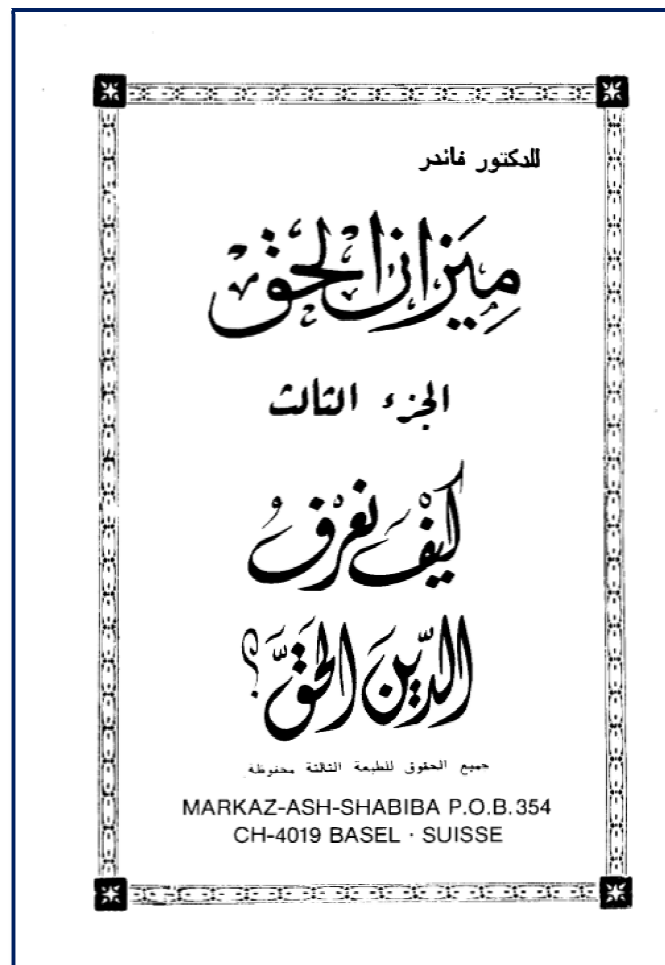 للدكتور فاندر
مِيزان الحق
الجزء الثالث
كيْفَ نعْرفُ
الدِّينَ الحَقَّ؟
جميع الحقوق للطبعة الثالثة محفوظة
MARKAZ-ASH-SHABIBA P.O.B. 354
CH-4019 BASEL · SUISSE